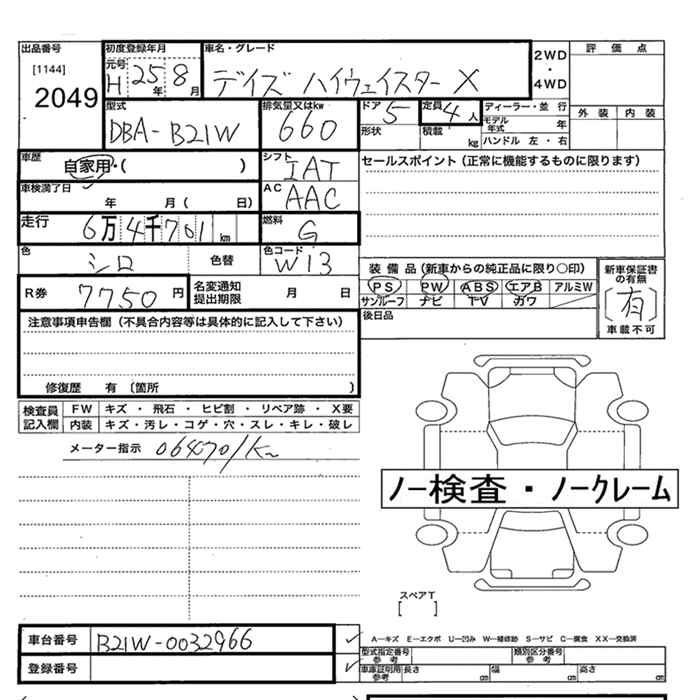 出品番号 [1144] 2049
初度登録年月 元号 H 25年 8月
車名・グレード デイズ ハイウェイスター X
2WD ・ 4WD
評価点
外装 内装
型式 DBA-B21W
排気量又はkw 660
ドア 5
形状
定員 4人
積載 kg
ディーラー・並行
モデル年式 年
ハンドル 左・右
車歴 自家用・( )
シフト IAT
セールスポイント(正常に機能するものに限ります)
車検満了日 年 月( 日)
AC AAC
走行 6万4千701km
燃料 G
色 シロ 色替
色コード W13
R券 7750円
名変通知提出期限 月 日
装備品(新車からの純正品に限り○印)
PS PW ABS エアB アルミW
サンルーフ ナビ TV カワ
新車保証書の有無 [有] 車載不可
後日品
注意事項申告欄(不具合内容等は具体的に記入して下さい)
修復歴 有 〔箇所 〕
検査員記入欄
FW キズ・飛石・ヒビ割・リペア跡・X要
内装 キズ・汚レ・コゲ・穴・スレ・キレ・破レ
メーター指示 064701Km
ノー検査・ノークレーム
スペアT
[ ]
車台番号 B21W-0032966
登録番号
A―キズ E―エクボ U―凹み W―補修跡 S―サビ C―腐食 XX―交換済
型式指定番号 参考
類別区分番号 参考
車庫証明用 参考 長さ cm 幅 cm 高さ cm